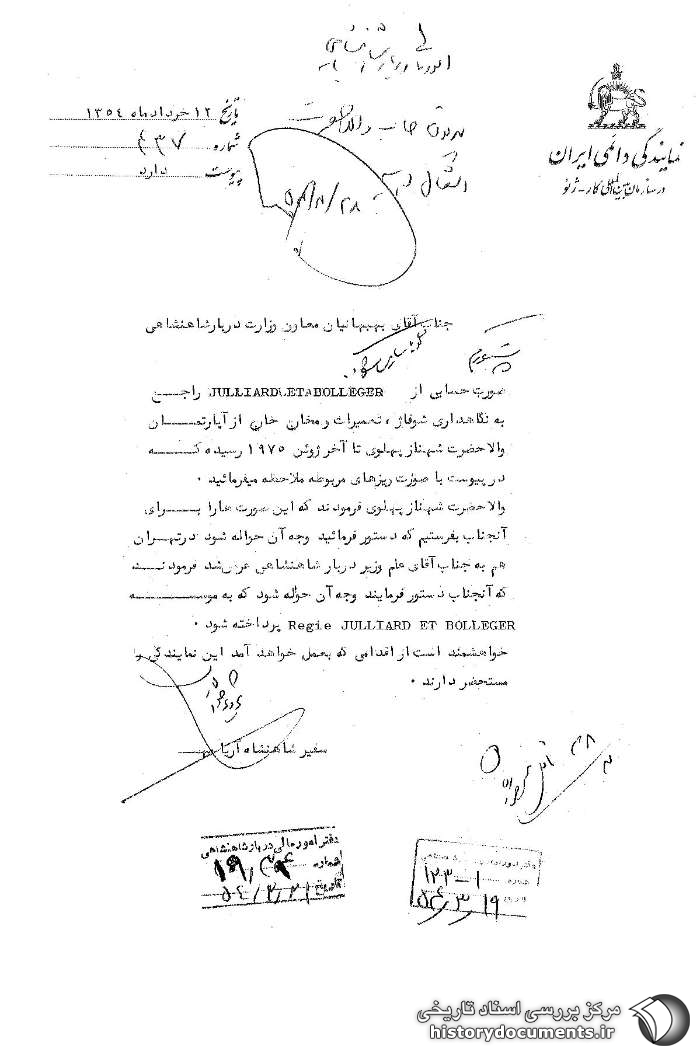 نمایندگی دائمی ایران
در سازمان بین‌المللی کار - ژنو
تاریخ ۱۲ خرداد ماه ۱۳۵۴
شماره ۴۳۷
پیوست دارد
جناب آقای بهبهانیان معاون وزارت دربار شاهنشاهی
صورت حسابی از JULLIARD ET BOLLEGER راجع
به نگاهداری شوفاژ، تعمیرات و مخارج از آپارتمان
والاحضرت شهناز پهلوی تا آخر ژوئن ۱۹۷۵ رسیده که
در پیوست با صورت ریزهای مربوطه ملاحظه میفرمائید .
والاحضرت شهناز پهلوی فرمودند که این صورت هارا برای
آنجناب بفرستیم که دستور فرمائید وجه آن حواله شود درتهران
هم به جناب آقای علم وزیر دربار شاهنشاهی عرض شد فرمودند
که آنجناب دستور فرمایند وجه آن حواله شود که به موسسه
Regie JULLIARD ET BOLLEGER پرداخته شود .
خواهشمند است از اقدامی که بعمل خواهد آمد این نمایندگی را
مستحضر دارند .
سفیر شاهنشاه آریامهر
دفتر امور مالی دربار شاهنشاهی
شماره
تاریخ ۵۴/۳/۲۱
۱۲۳-۱
۵۴/۳/۱۹
مرکز بررسی اسناد تاریخی
historydocuments.ir